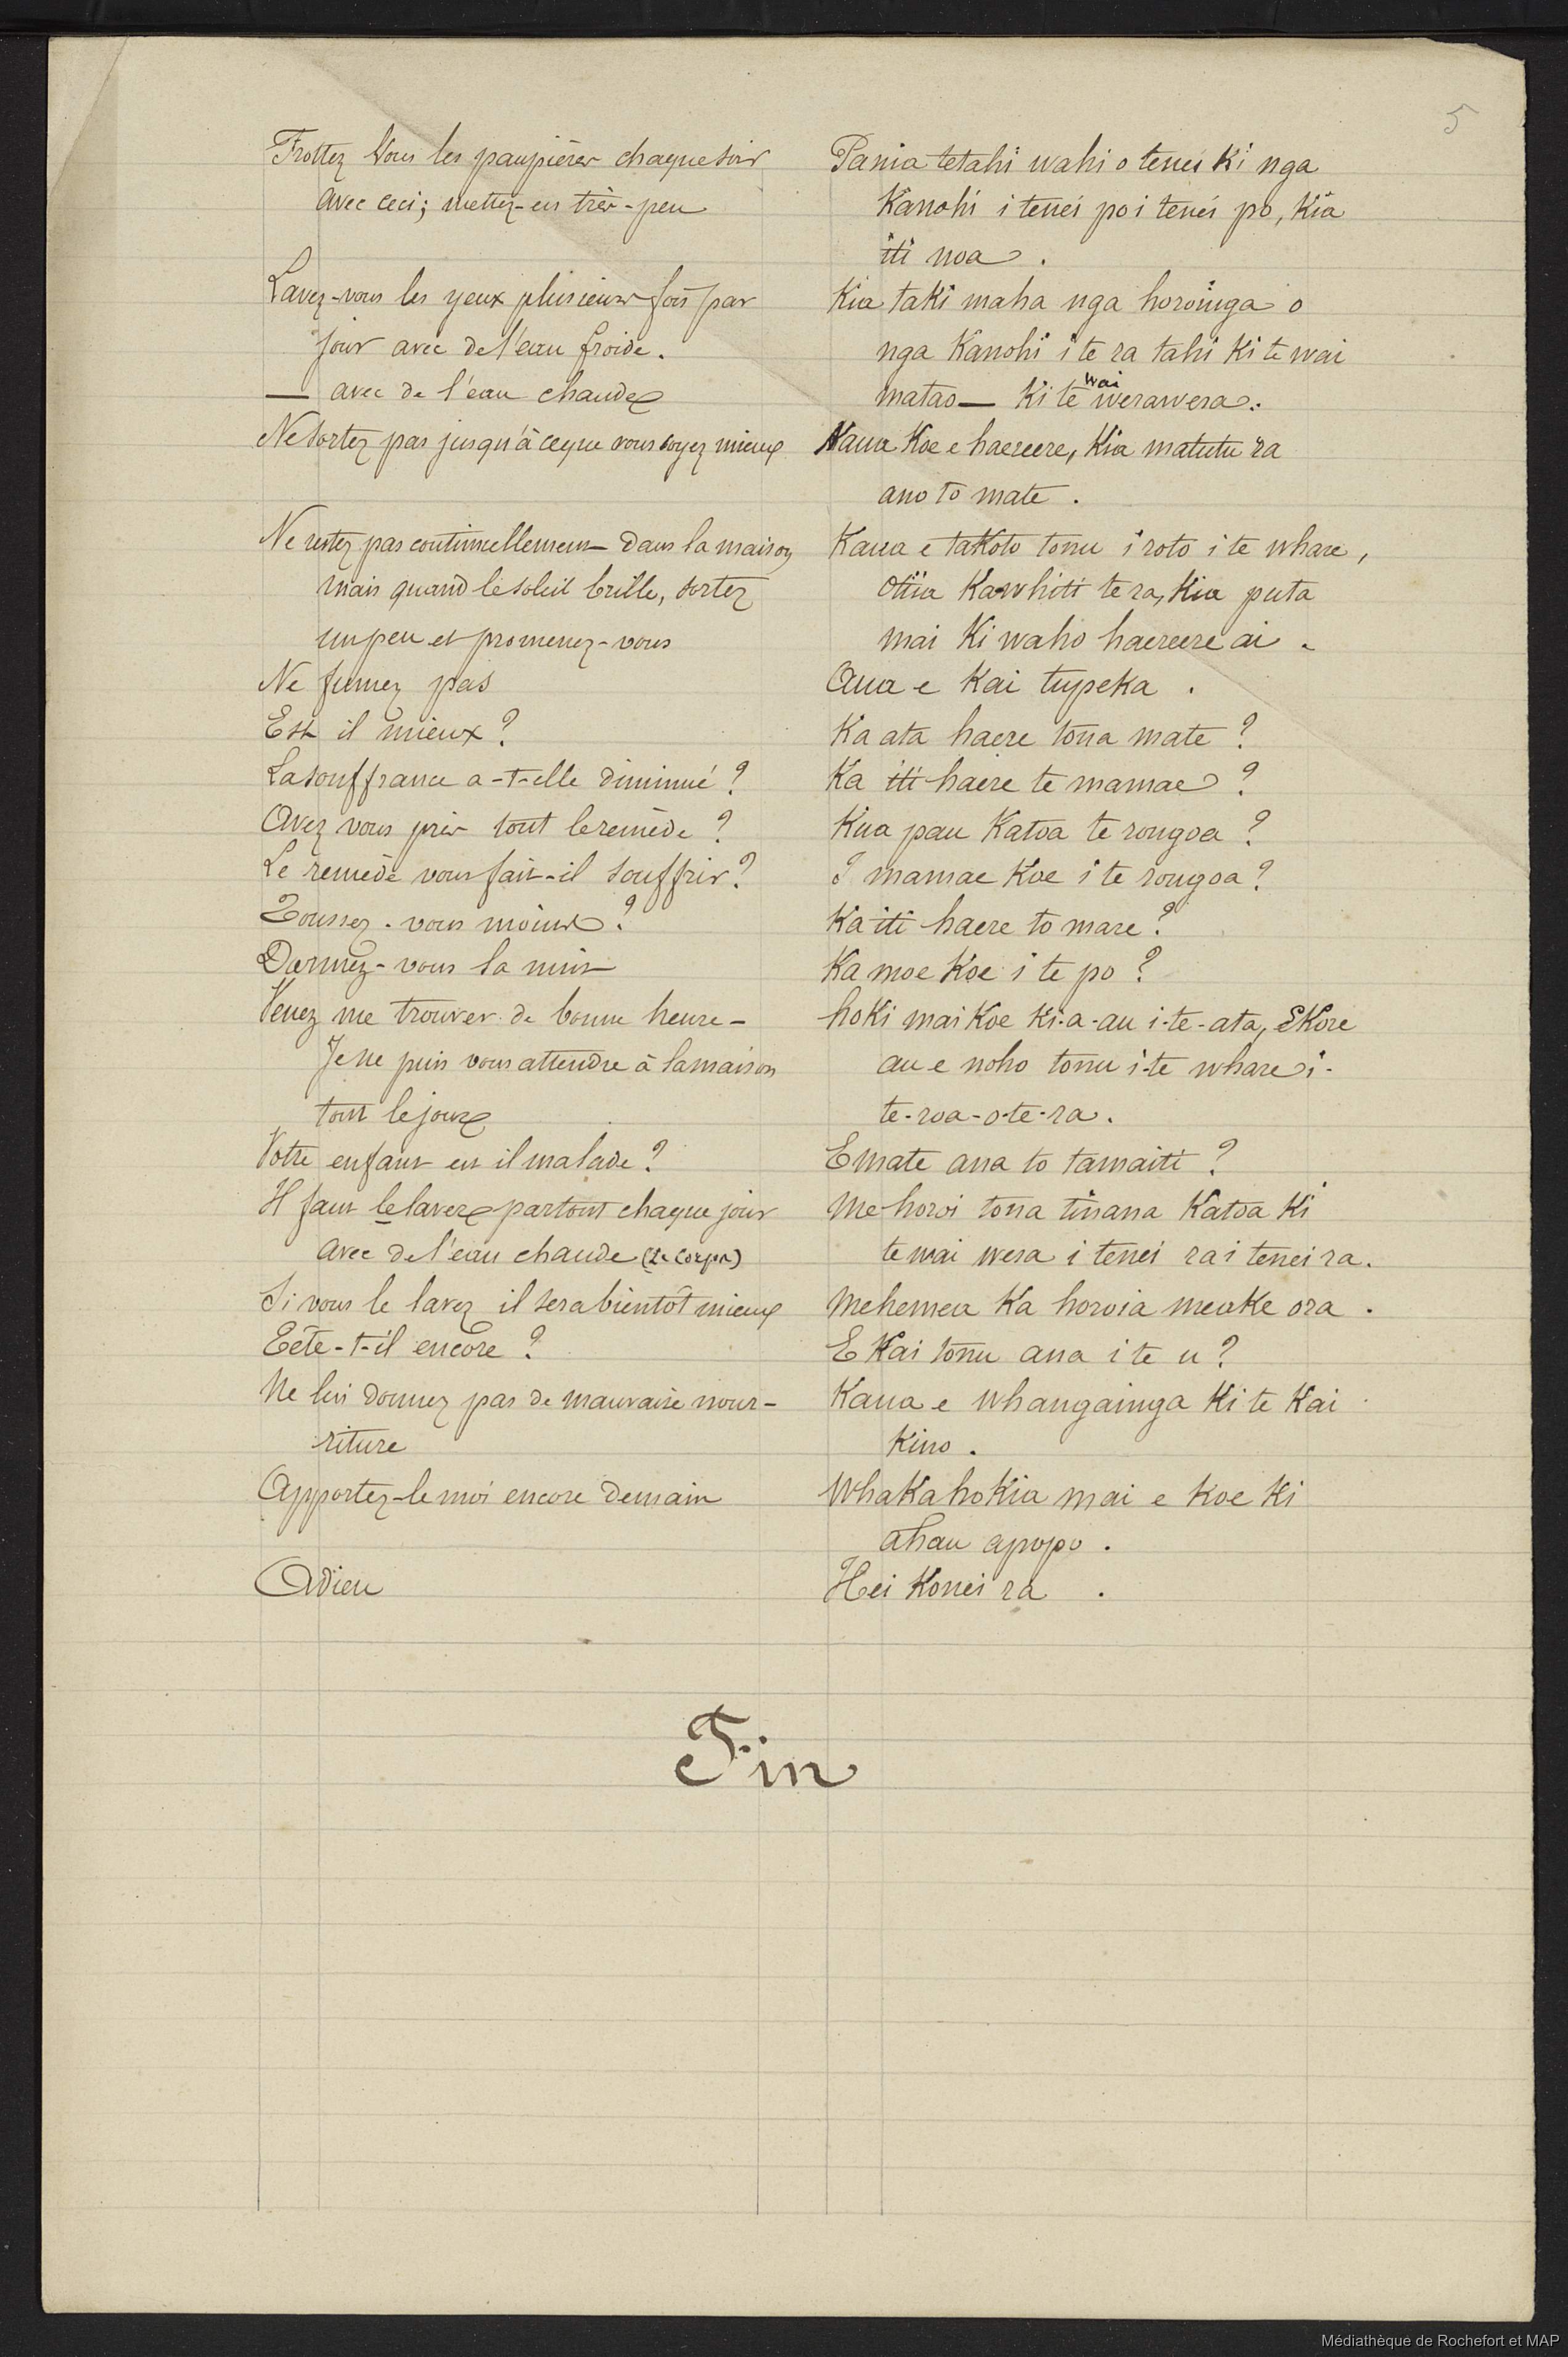 5
Frottez Vous les paupières chaque soir
avec ceci; mettez-en très-peu
Lavez-vous les yeux plusieurs fois par
jour avec de l'eau froide.
— avec de l'eau chaude
Ne sortez pas jusqu'à ce que vous soyez mieux
Ne restez pas continuellement dans la maison
mais quand le soleil brille, sortez
un peu et promenez-vous
Ne fumez pas
Est il mieux ?
La souffrance a-t-elle diminué ?
Avez vous pris tout le remède ?
Le remède vous fait-il souffrir ?
Toussez-vous moins ?
Dormez-vous la nuit
Venez me trouver de bonne heure -
Je ne puis vous attendre à la maison
tout le jour
Votre enfant est il malade ?
Il faut le laver partout chaque jour
avec de l'eau chaude (Le corps)
Si vous le lavez il sera bientôt mieux
Tête-t-il encore ?
Ne lui donnez pas de mauvaise nour-
riture
Apportez-le moi encore demain
Adieu
Pania tetahi wahi o tenei ki nga
Kanohi i tenei po i tenei po, Kia
iti noa.
Kia taki maha nga horoinga o
nga Kanohi i te ra tahi ki te wai
matao — Ki te wai werawera.
Kaua Koe e haereere, Kia matutu ra
ano to mate.
Kaua e takoto tonu i roto i te whare,
Otiia Kawhiti te ra, Kia puta
mai Ki waho haereere ai.
Aua e Kai tupeka.
Ka ata haere tona mate ?
Ka iti haere te mamae ?
Kua pau Katoa te rongoa ?
I mamae Koe i te rongoa ?
Ka iti haere to mare ?
Ka moe Koe i te po ?
hoki mai Koe Ki-a-au i-te-ata, EKore
au e noho tonu i-te whare i-
te-roa-o-te-ra.
E mate ana to tamaiti ?
Me horoi tona tinana Katoa Ki
te wai wera i tenei ra i tenei ra.
Mehemea Ka horoia meake ora.
E Kai tonu ana i te u ?
Kaua e whangainga Ki te Kai
Kino.
WhaKahoKia mai e Koe Ki
ahau apopo.
Hei Konei ra.
Fin
Médiathèque de Rochefort et MAP